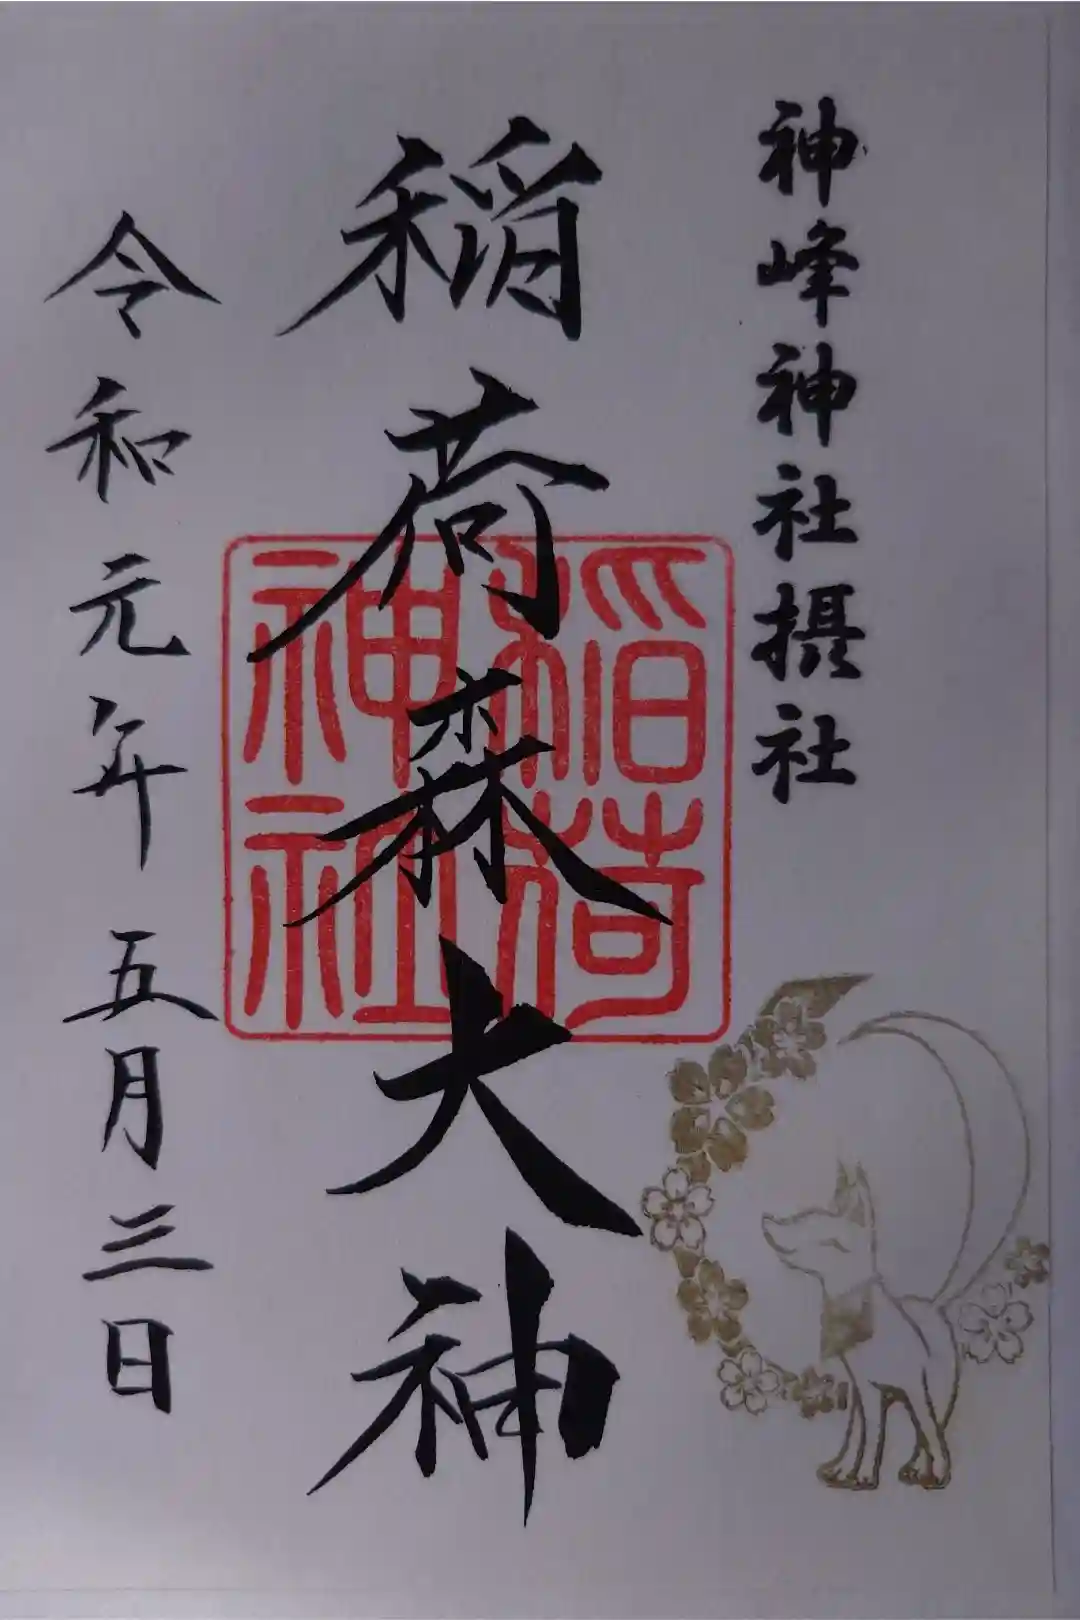 神峰神社摂社
稲荷森大神
稲荷
神社
令和元年五月三日